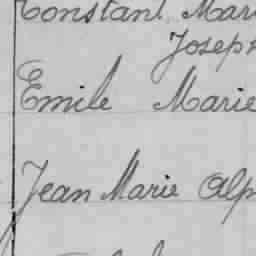 Constant Mari
Joseph
Emile Marie
Jean Marie Alp